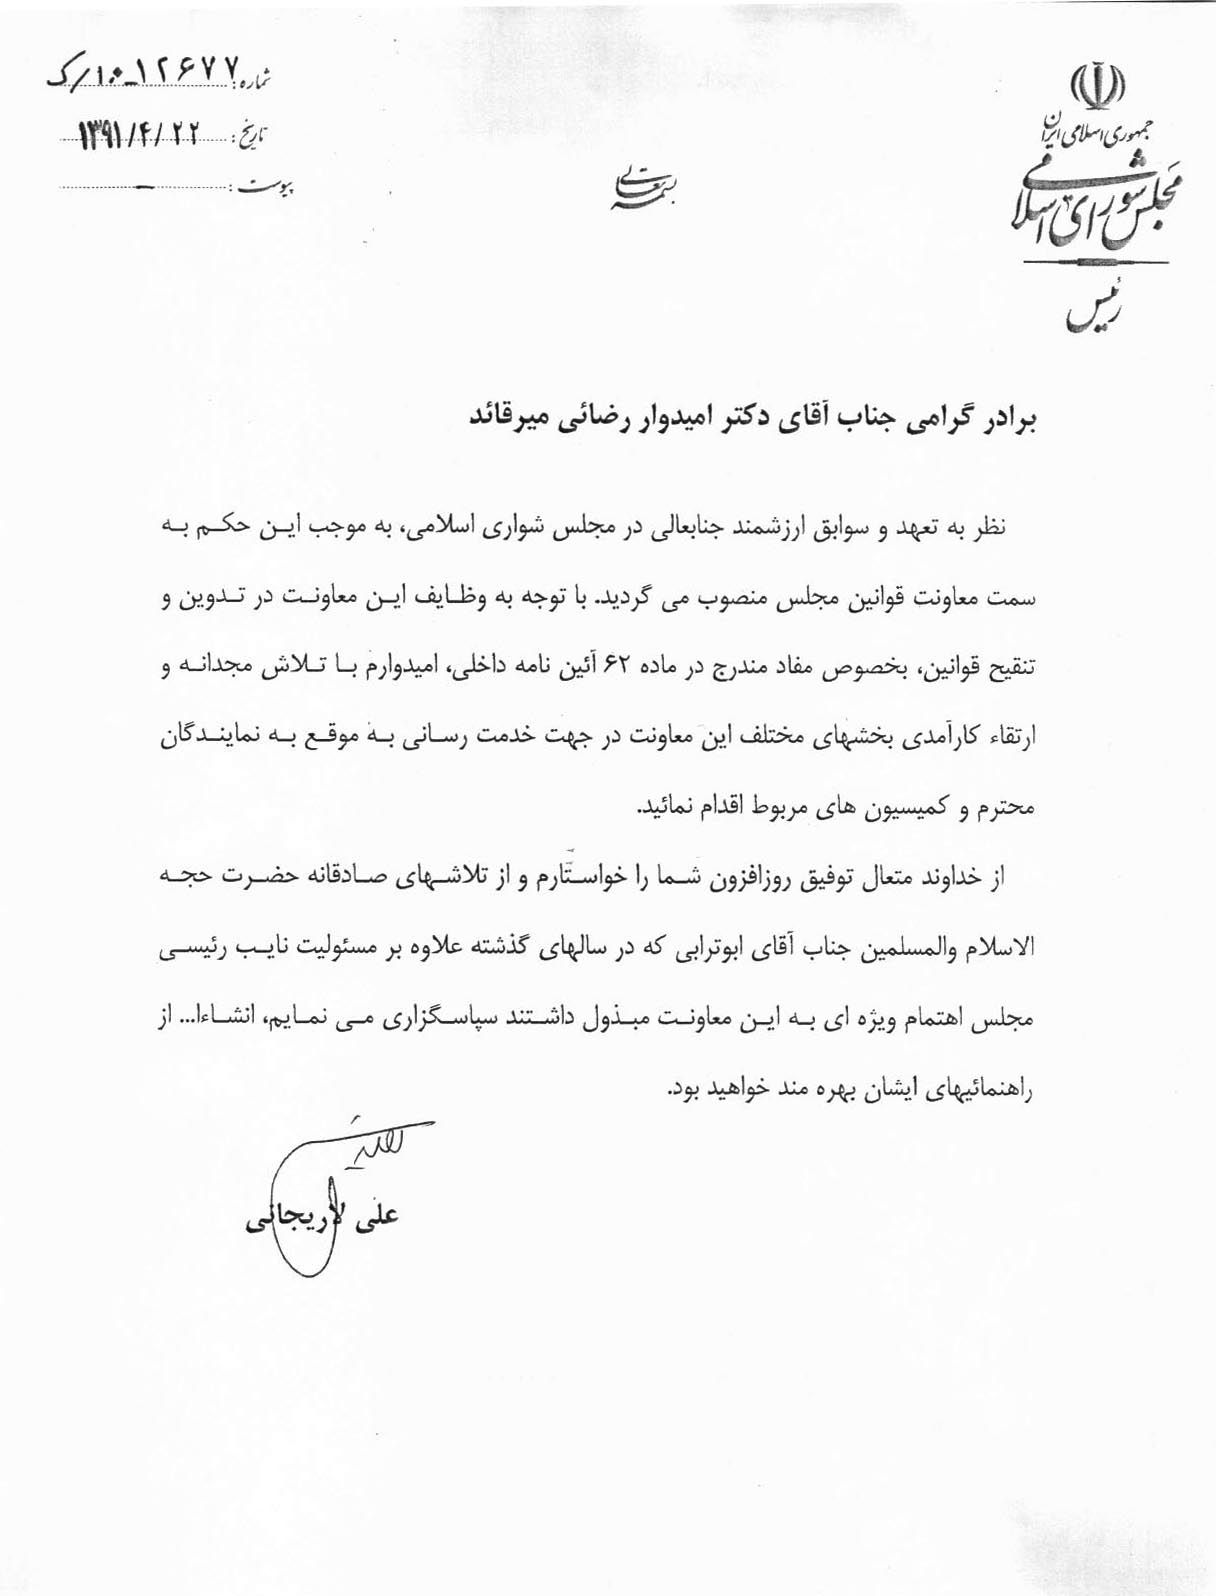 جمهوری اسلامی ایران
مجلس شورای اسلامی
رئیس
بسمه تعالی
شماره: ۱۲۶۷۷_۱۰/ک
تاریخ: ۱۳۹۱/۴/۲۲
پیوست: _
برادر گرامی جناب آقای دکتر امیدوار رضائی میرقائد
نظر به تعهد و سوابق ارزشمند جنابعالی در مجلس شواری اسلامی، به موجب این حکم به
سمت معاونت قوانین مجلس منصوب می گردید. با توجه به وظایف این معاونت در تدوین و
تنقیح قوانین، بخصوص مفاد مندرج در ماده ۶۲ آئین نامه داخلی، امیدوارم با تلاش مجدانه و
ارتقاء کارآمدی بخشهای مختلف این معاونت در جهت خدمت رسانی به موقع به نمایندگان
محترم و کمیسیون های مربوط اقدام نمائید.
از خداوند متعال توفیق روزافزون شما را خواستارم و از تلاشهای صادقانه حضرت حجه
الاسلام والمسلمین جناب آقای ابوترابی که در سالهای گذشته علاوه بر مسئولیت نایب رئیسی
مجلس اهتمام ویژه ای به این معاونت مبذول داشتند سپاسگزاری می نمایم، انشاءا... از
راهنمائیهای ایشان بهره مند خواهید بود.
علی لاریجانی